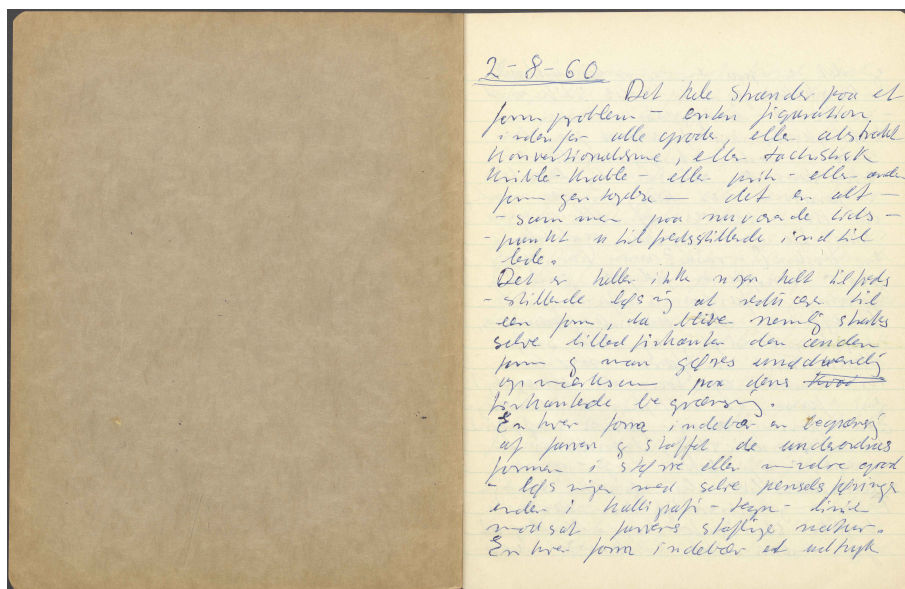 2-8-60
Det hele strander paa et
form problem - enten figuration,
indenfor alle grader, eller abstrakt
Konventionalisme, eller tachistisk
Krible-Krable - eller prik - eller anden
form gentagelse - det er alt -
- sammen paa nuværende tids -
- punkt utilfredsstillende indtil
lede.
Det er heller ikke nogen helt tilfreds
- stillende løsning at reducere til
een form, da bliver nemlig straks
selve billedfirkanten den anden
form og man gøres uundværdig
opmærksom paa dens
firkantede begrænsning.
En hver form indebær en begrænsning
af farven og stoffet de underordnes
formen i større eller mindre grad
- løsningen med selve penselføringen
ender i kalligrafi - tegn - linie
modsat farvens stoflige natur.
En hver form indebær et udtryk